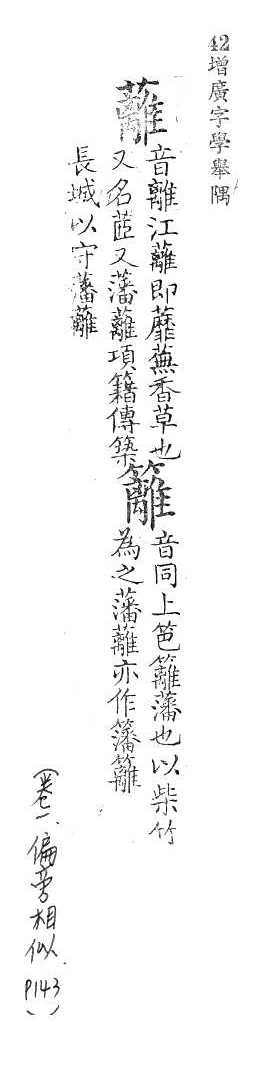 42增廣字學舉隅
蘺
音離江蘺即蘼蕪香草也
又名茝又藩蘺項籍傳築
長城以守藩蘺
籬
音同上笆籬藩也以柴竹
為之藩蘺亦作籓籬
(卷一、偏旁相似 P143)